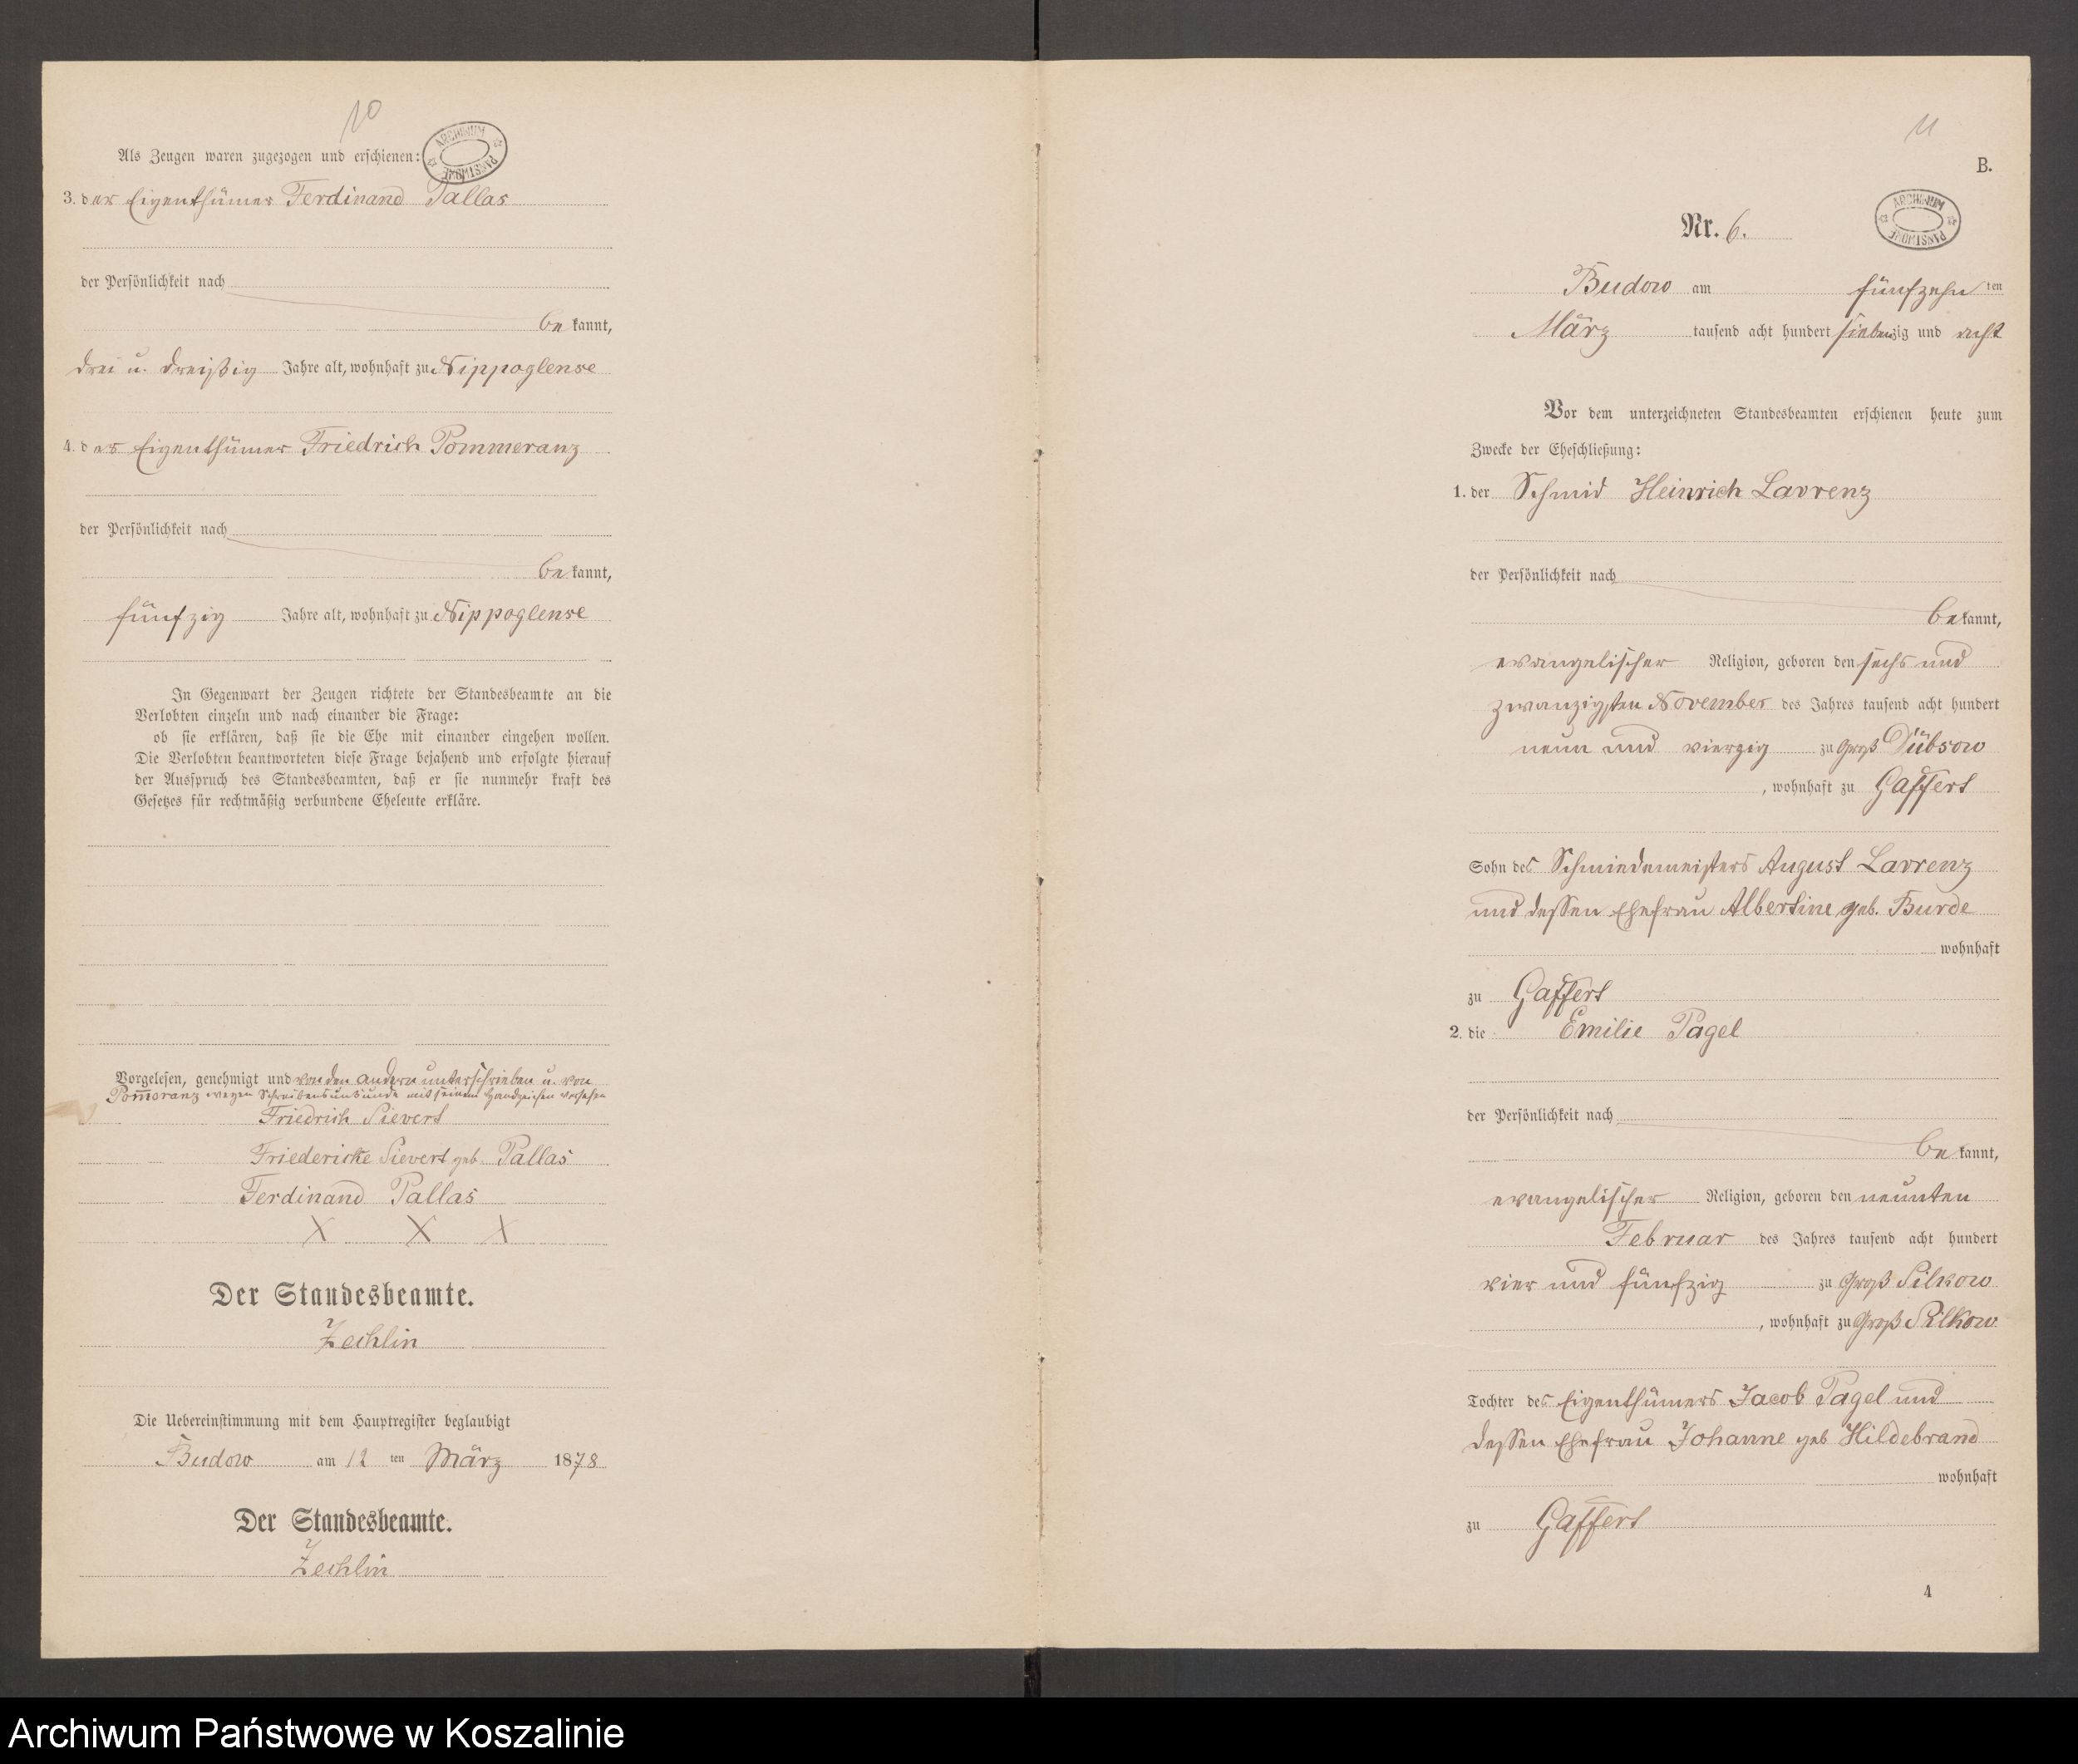 10
Als Zeugen waren zugezogen und erschienen:
ARCHIWUM PAŃSTWOWE
3. der Eigenthümer Ferdinand Pallas
der Persönlichkeit nach
be kannt,
drei u. dreißig Jahre alt, wohnhaft zu Nippoglense
4. der Eigenthümer Friedrich Pommeranz
der Persönlichkeit nach
be kannt,
fünfzig Jahre alt, wohnhaft zu Nippoglense
In Gegenwart der Zeugen richtete der Standesbeamte an die
Verlobten einzeln und nach einander die Frage:
ob sie erklären, daß sie die Ehe mit einander eingehen wollen.
Die Verlobten beantworteten diese Frage bejahend und erfolgte hierauf
der Ausspruch des Standesbeamten, daß er sie nunmehr kraft des
Gesetzes für rechtmäßig verbundene Eheleute erkläre.
Vorgelesen, genehmigt und von den andern unterschrieben u. von
Pom̅eranz wegen Schreibensunkunde mit seinem Handzeichen versehen
Friedrich Sievert
Friedericke Sievert geb. Pallas
Ferdinand Pallas
X X X
Der Standesbeamte.
Zechlin
Die Uebereinstimmung mit dem Hauptregister beglaubigt
Budow am 12 ten März 1878
Der Standesbeamte.
Zechlin
11
B.
ARCHIWUM PAŃSTWOWE
Nr. 6.
Budow am fünfzehn ten
März tausend acht hundert siebenzig und acht
Vor dem unterzeichneten Standesbeamten erschienen heute zum
Zwecke der Eheschließung:
1. der Schmid Heinrich Lavrenz
der Persönlichkeit nach
be kannt,
evangelischer Religion, geboren den sechs und
zwanzigsten November des Jahres tausend acht hundert
neun und vierzig zu Groß Dübsow
, wohnhaft zu Gaffert
Sohn des Schmiedemeisters August Lavrenz
und dessen Ehefrau Albertine geb. Burde
wohnhaft
zu Gaffert
2. die Emilie Pagel
der Persönlichkeit nach
be kannt,
evangelischer Religion, geboren den neunten
Februar des Jahres tausend acht hundert
vier und fünfzig zu Groß Silkow
, wohnhaft zu Groß Silkow
Tochter des Eigenthümers Jacob Pagel und
dessen Ehefrau Johanne geb Hildebrand
wohnhaft
zu Gaffert
4
Archiwum Państwowe w Koszalinie